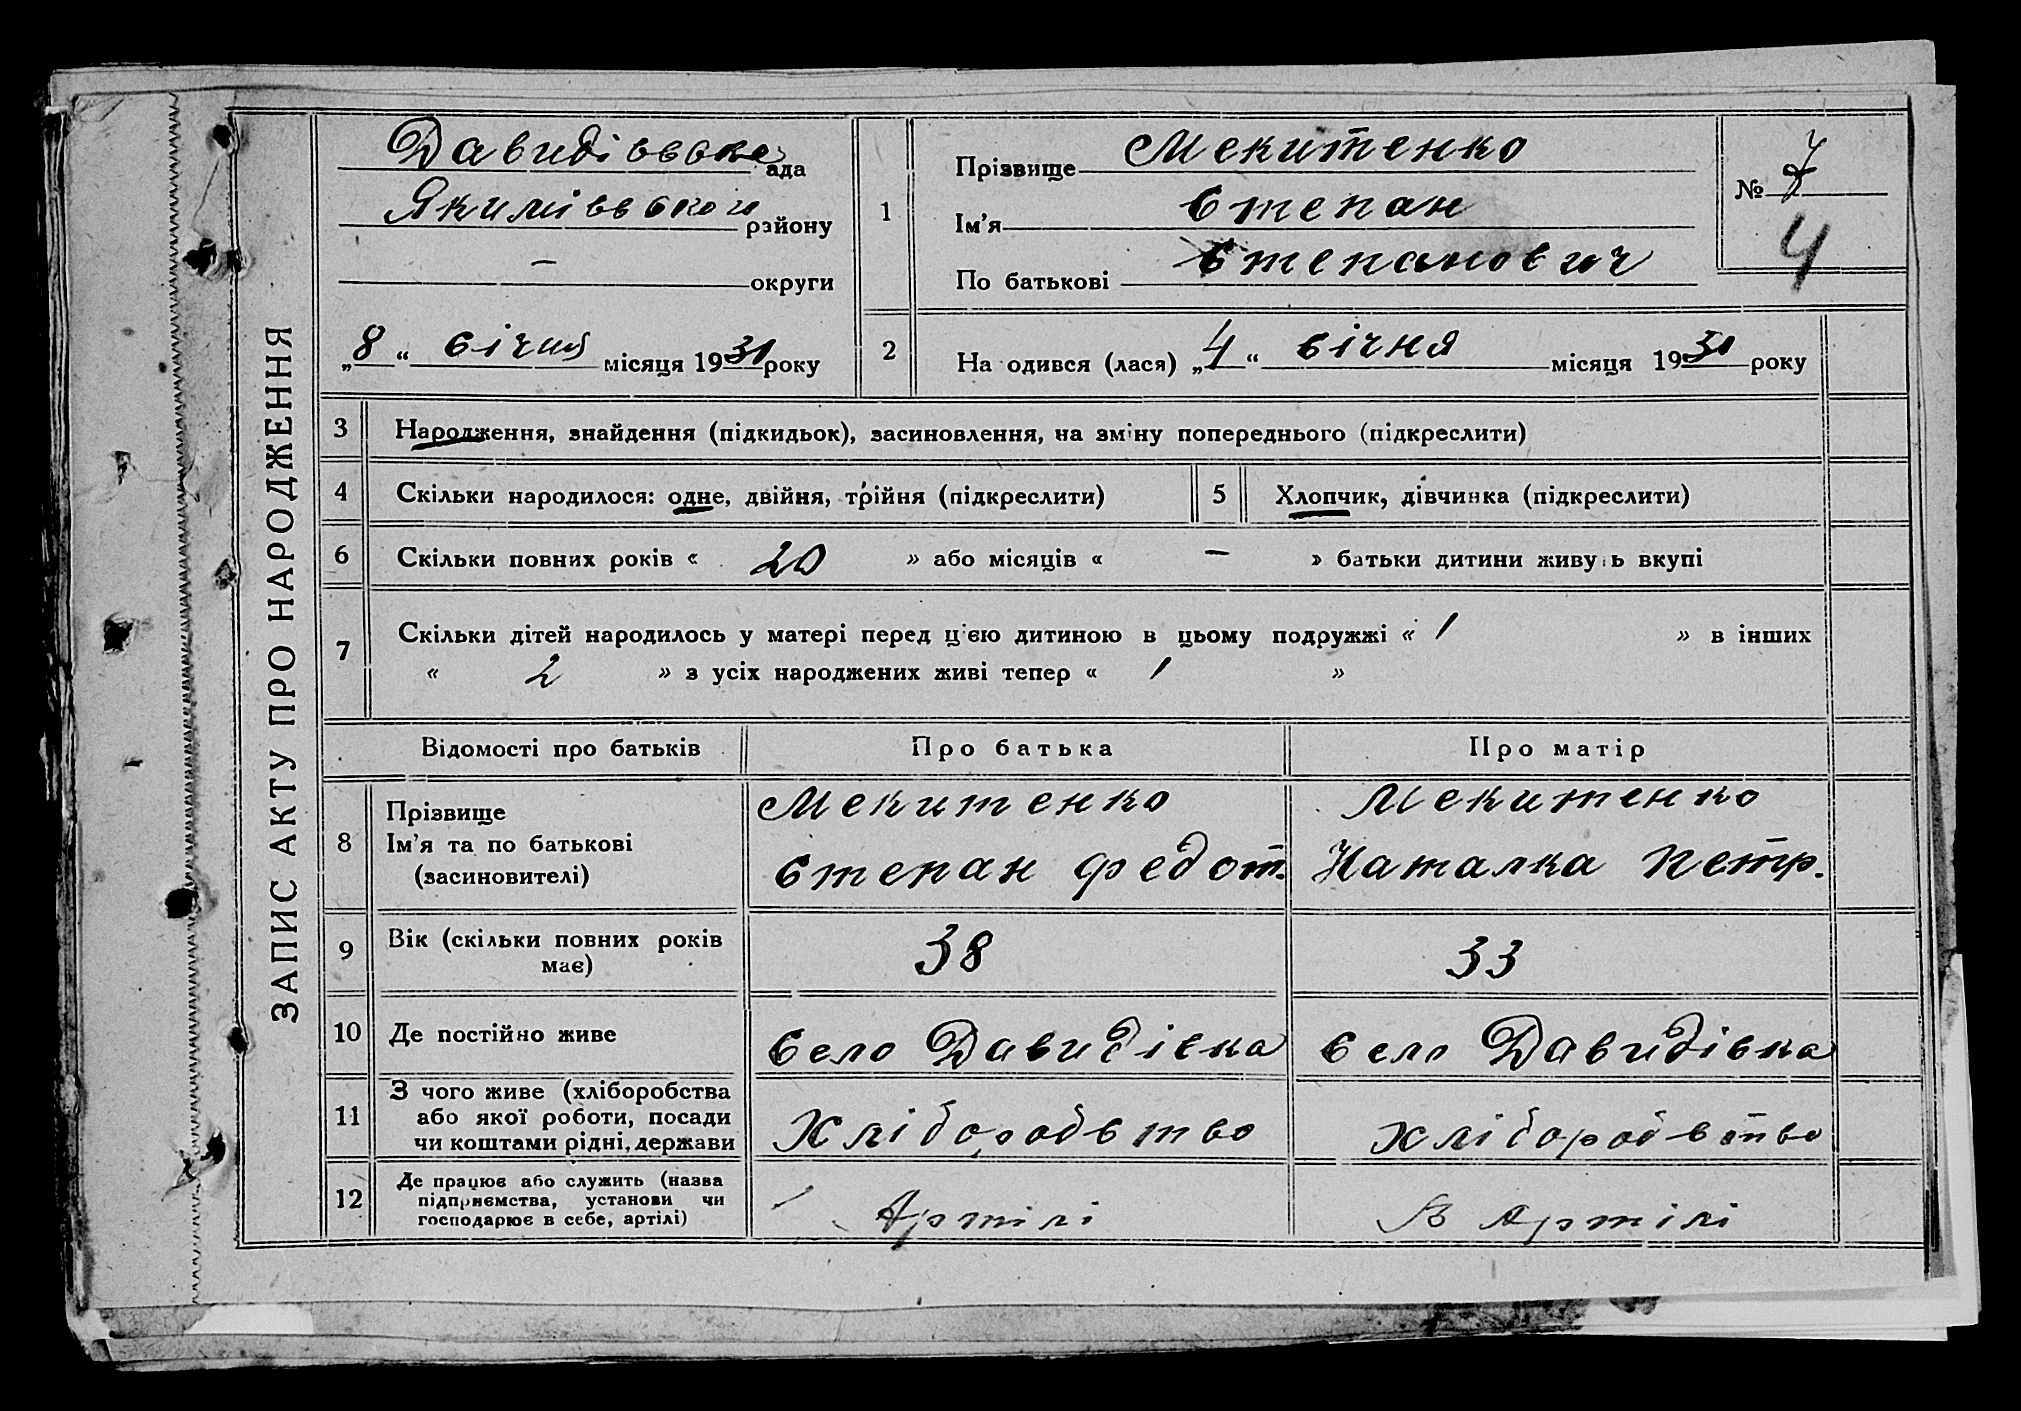 ЗАПИС АКТУ ПРО НАРОДЖЕННЯ
Давидівська ада
Якимівського району
— округи
„8“ січня місяця 1931 року
1
Прізвище Мекитенко
Ім'я Степан
По батькові Степанович
№ 7
4
2
На одився (лася) „4“ січня місяця 1931 року
3 Народження, знайдення (підкидьок), засиновлення, на зміну попереднього (підкреслити)
4 Скільки народилося: одне, двійня, трійня (підкреслити)
5 Хлопчик, дівчинка (підкреслити)
6 Скільки повних років « 20 » або місяців « — » батьки дитини живуь вкупі
7 Скільки дітей народилось у матері перед цією дитиною в цьому подружжі « 1 » в інших
« 2 » з усіх народжених живі тепер « 1 »
Відомості про батьків Про батька Про матір
8 Прізвище
Ім'я та по батькові
(засиновителі)
Мекитенко
Степан Федот.
Мекитенко
Наталка Петр.
9 Вік (скільки повних років
має)
38
33
10 Де постійно живе
Село Давидівка
Село Давидівка
11 З чого живе (хліборобства
або якої роботи, посади
чи коштами рідні, держави
Хліборобство
Хліборобство
12 Де працює або служить (назва
підприємства, установи чи
господарює в себе, артілі)
Артілі
В Артілі